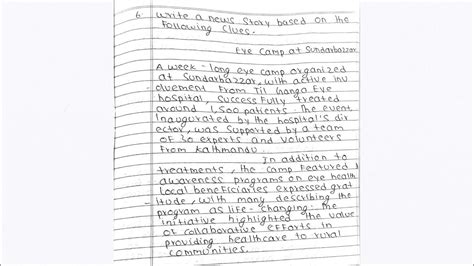 6. Write a news story based on the
following clues.
Eye Camp at Sundarbazzar
A week-long eye camp organized
at Sundarbazzar, with active inv
olvement from Til Ganga Eye
hospital, successfully treated
around 1,500 patients. The event,
Inaugurated by the hospital's dir
ector, was supported by a team
of 30 experts and volunteers
from Kathmandu.
In addition to
treatments, the camp featured
awareness programs on eye health
local beneficiaries expressed grat
itude, with many describing the
program as life-changing. the
initiative highlighted the value
of collaborative efforts in
providing healthcare to rural
communities.